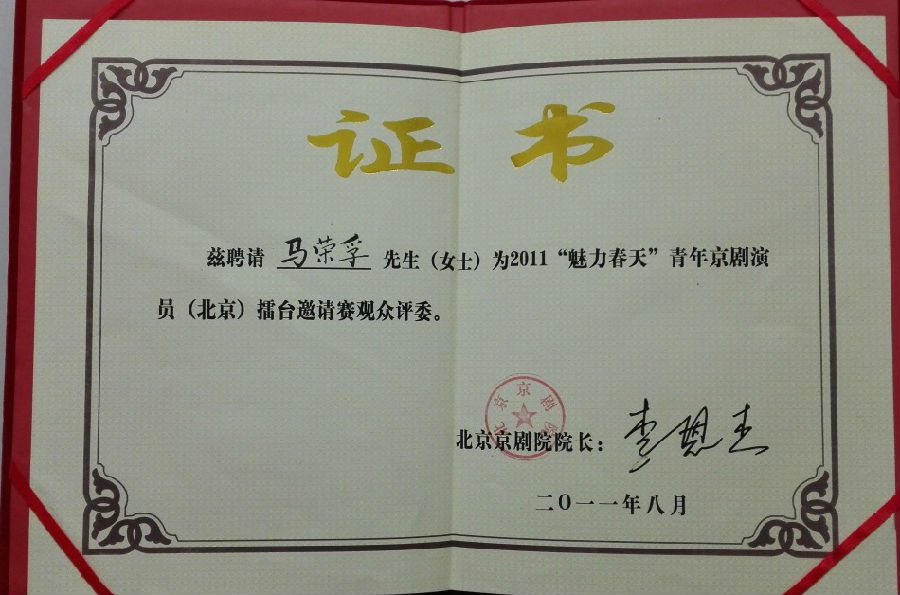 证书
兹聘请 马荣孚 先生（女士）为2011“魅力春天”青年京剧演
员（北京）擂台邀请赛观众评委。
北京京剧院
北京京剧院院长：李恩杰
二〇一一年八月